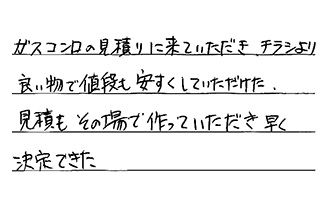 ガスコンロの見積りに来ていただき、チラシより
良い物で値段も安すくしていただけた、
見積もその場で作っていただき早く
決定できた